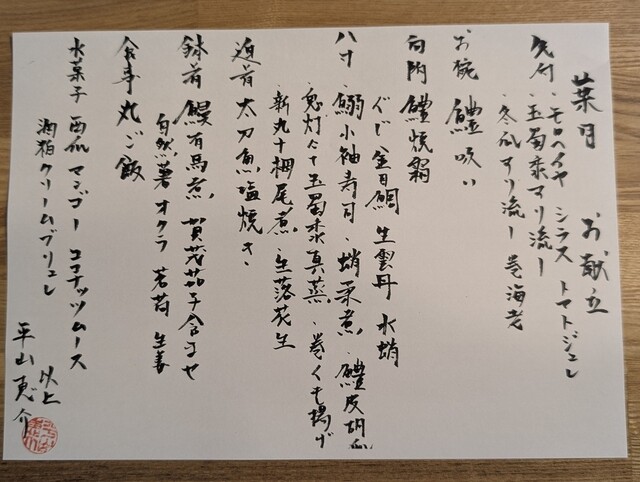 葉月　お献立
先付・モロヘイヤ　シラス　トマトジュレ
・玉蜀黍すり流し
・冬瓜すり流し　巻海老
お椀　鱧吸い
向附　鱧焼霜
ぐじ　金目鯛　生雲丹　水蛸
八寸・鰯小袖寿司・蛸柔煮・鱧皮胡瓜
・鬼灯にて玉蜀黍真蒸・巻くも揚げ
・新丸十梔尾煮・生落花生
追肴　太刀魚塩焼き
鉢肴　鰻有馬煮　賀茂茄子含ませ
自然薯　オクラ　茗荷　生姜
食事　丸ご飯
水菓子　西瓜　マンゴー　ココナッツムース
酒粕クリームブリュレ
以上
平山恵介